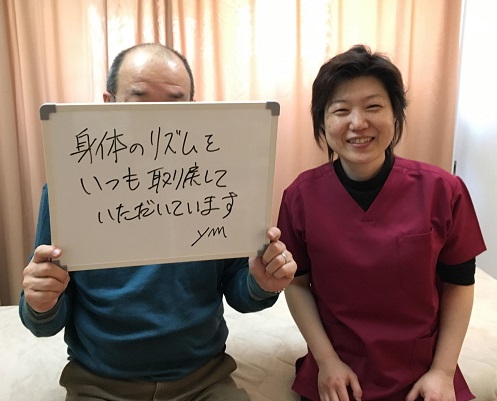 身体のリズムを
いつも取り戻して
いただいています
YM